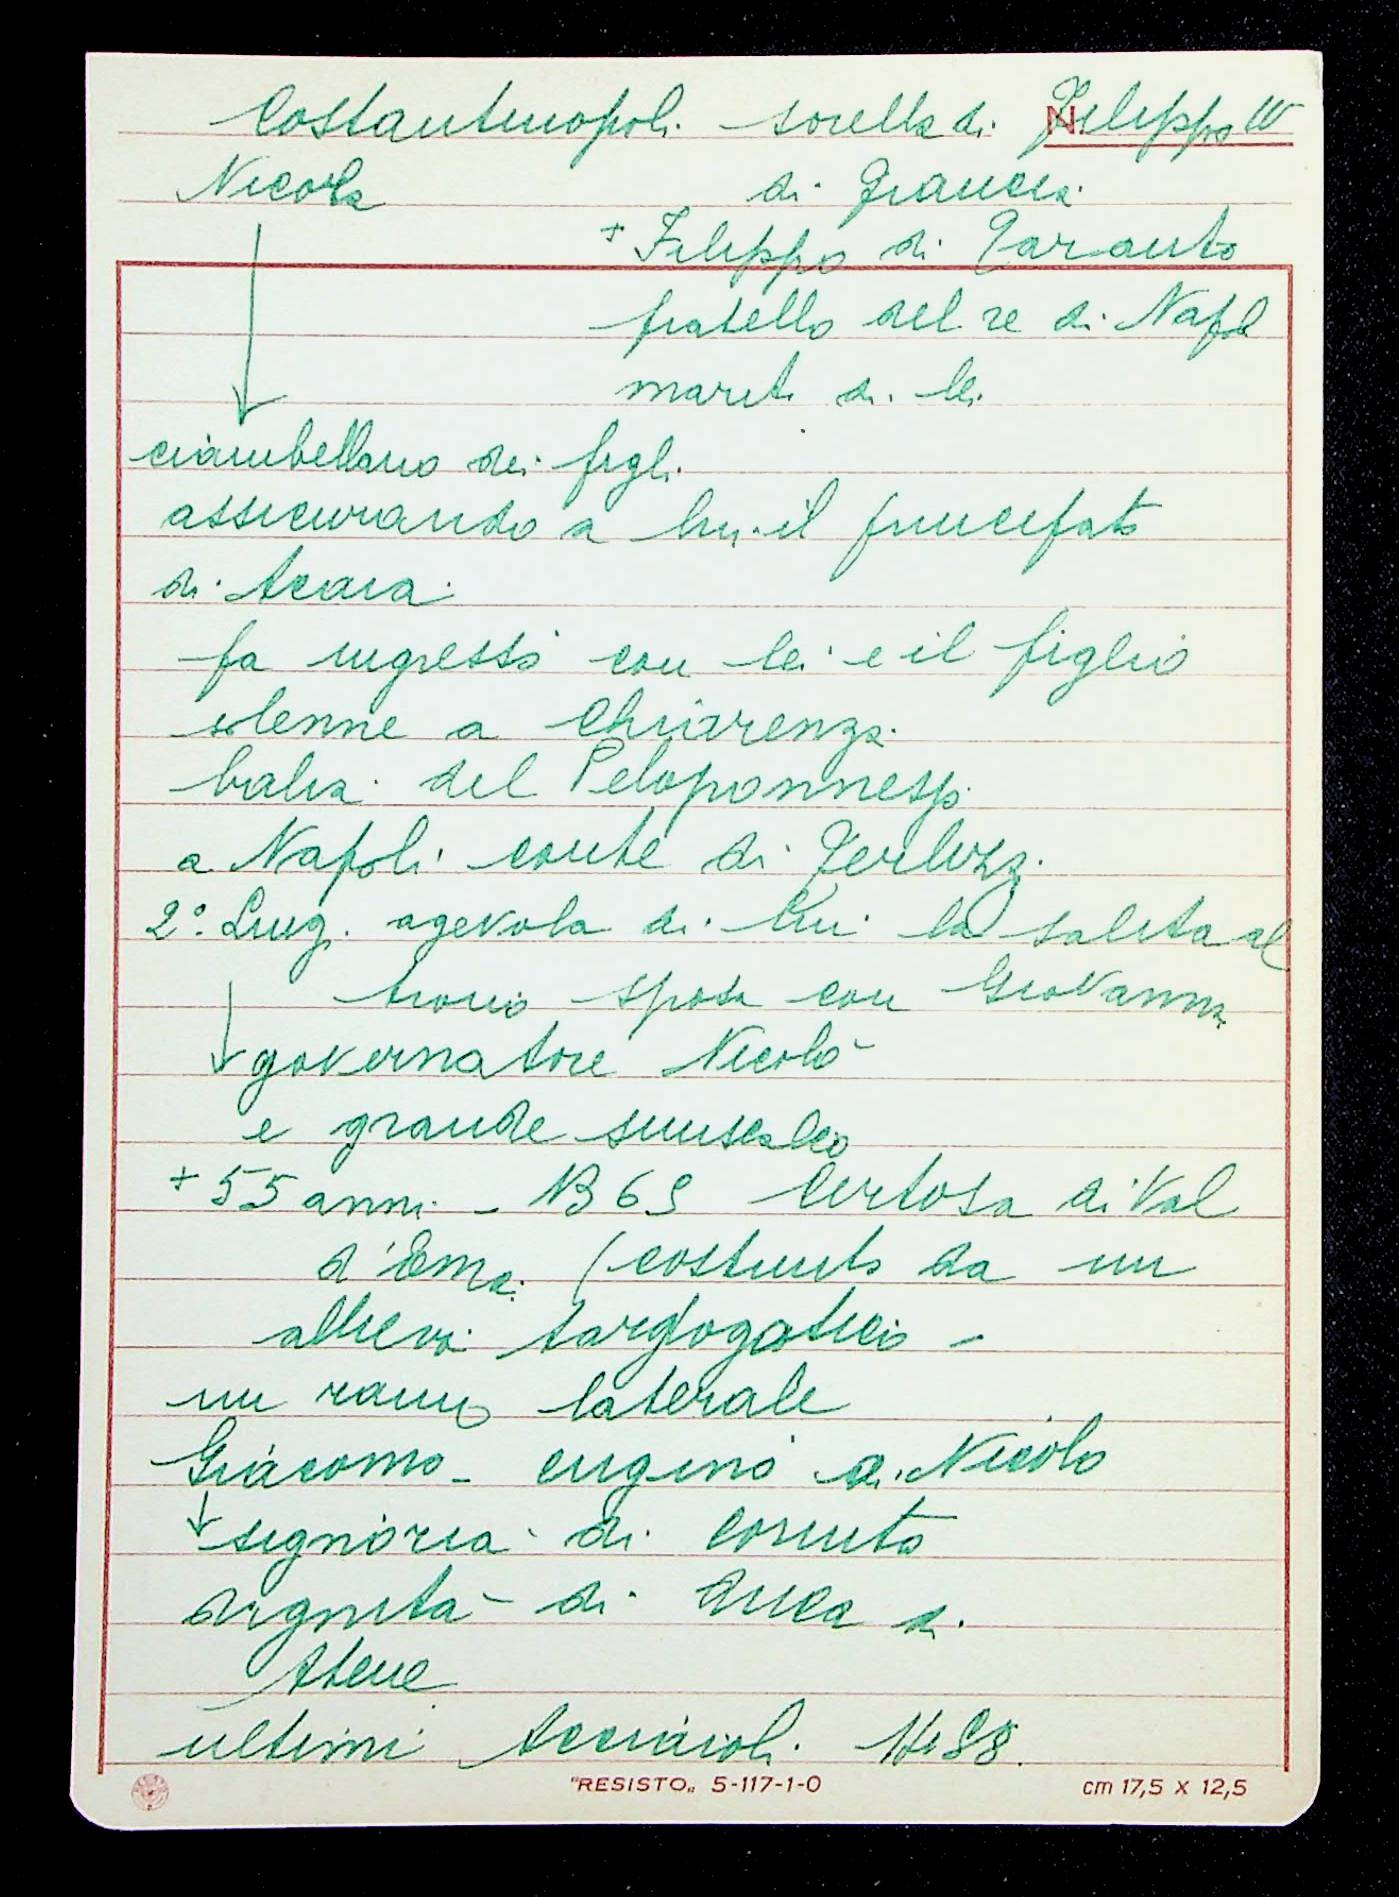 Costantinopoli sorella di Filippo IV
N.
Nicola di Francia
+ Filippo di Taranto
fratello del re di Napoli
marito di lei
ciambellano dei figli
assicurando a lui il principato
di Acaia
fa ingresso con lei e il figlio
solenne a Chiarenza
balia del Peloponneso
a Napoli conte di Terlizzi
2°. Luig. agevola di lui la salita al
trono sposa con Giovanna
governatore Nicolò
e grande siniscalco
+ 55 anni - 1365 Certosa di Val
d'Ema (costruito da un
allievo tardogotico -
un ramo laterale
Giacomo - cugino di Nicolò
signoria di Corinto
dignità di duca di
Atene
ultimi Acciaioli
"RESISTO" 5-117-1-0 cm 17,5 x 12,5